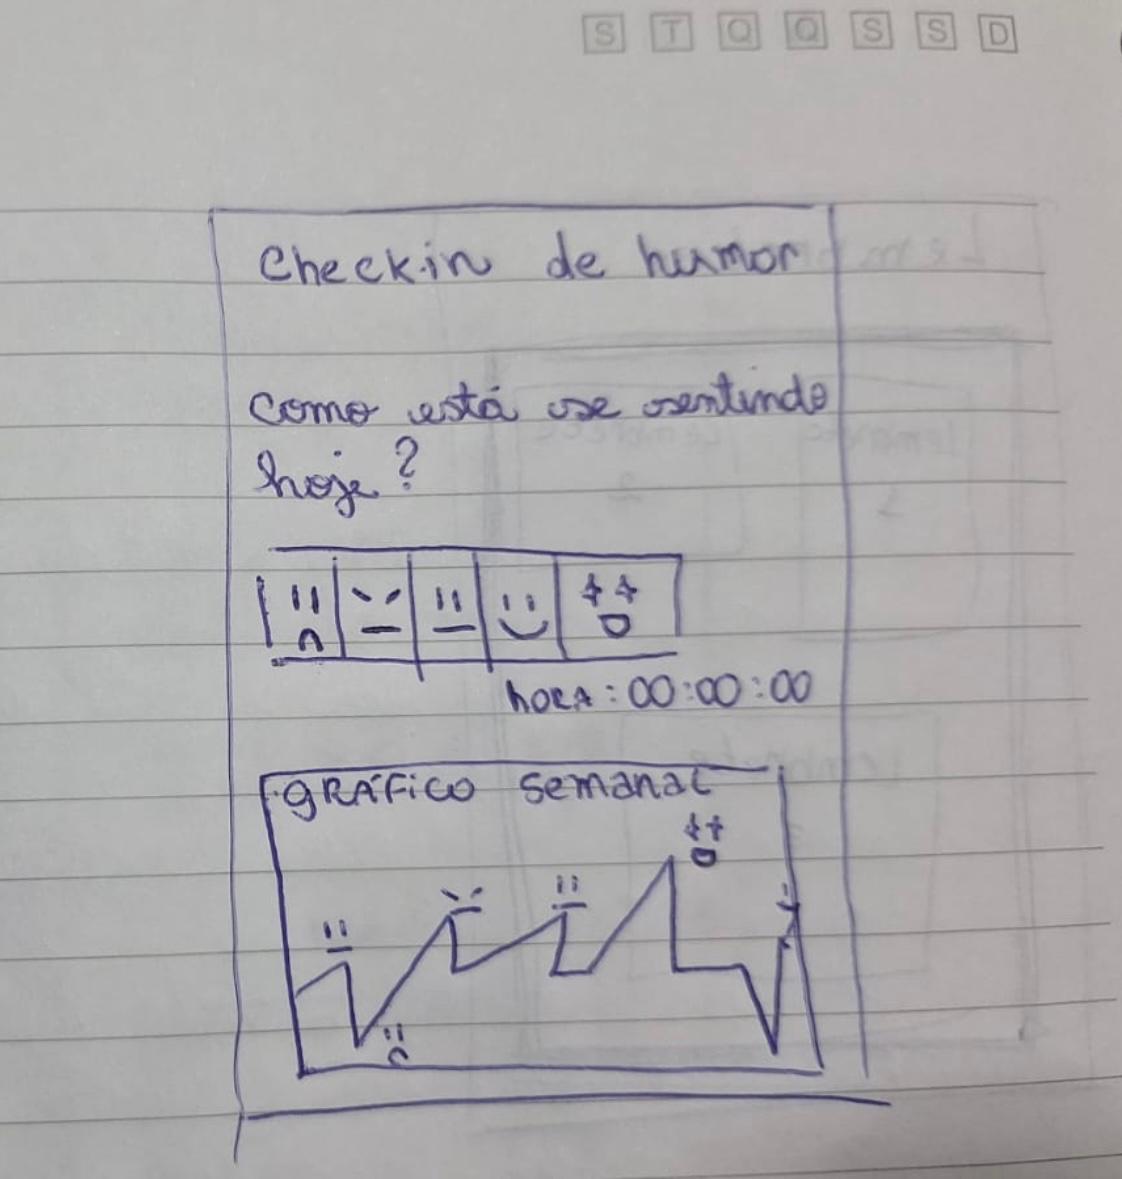 S T Q Q S S D
Check-in de humor
Como está se sentindo
hoje?
hora: 00:00:00
gráfico semanal